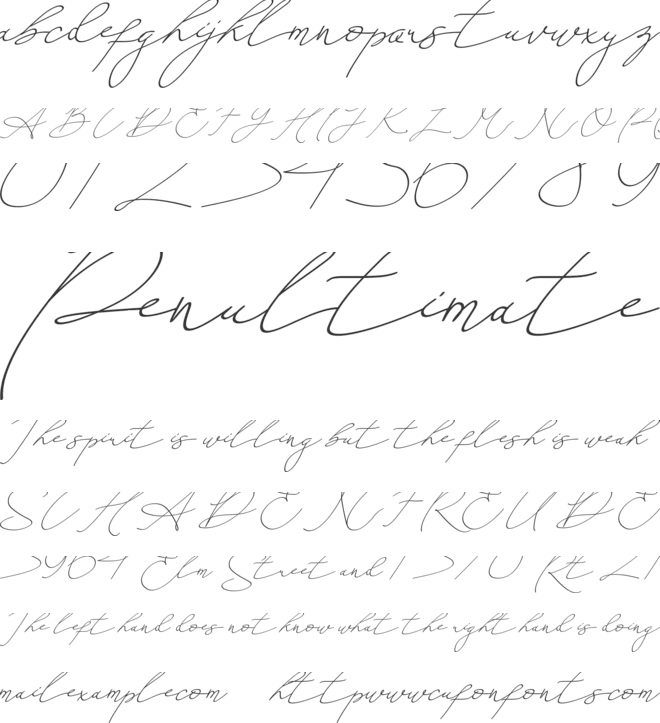 abcdefghijklmnopqrstuvwxyz
ABCDEFGHIJKLMNOP
Penultimate
The spirit is willing but the flesh is weak
SCHADENFREUDE
3904 Elm Street and 1370 Rt 21
The left hand does not know what the right hand is doing
mailexamplecom httpwwwcufonfontscom